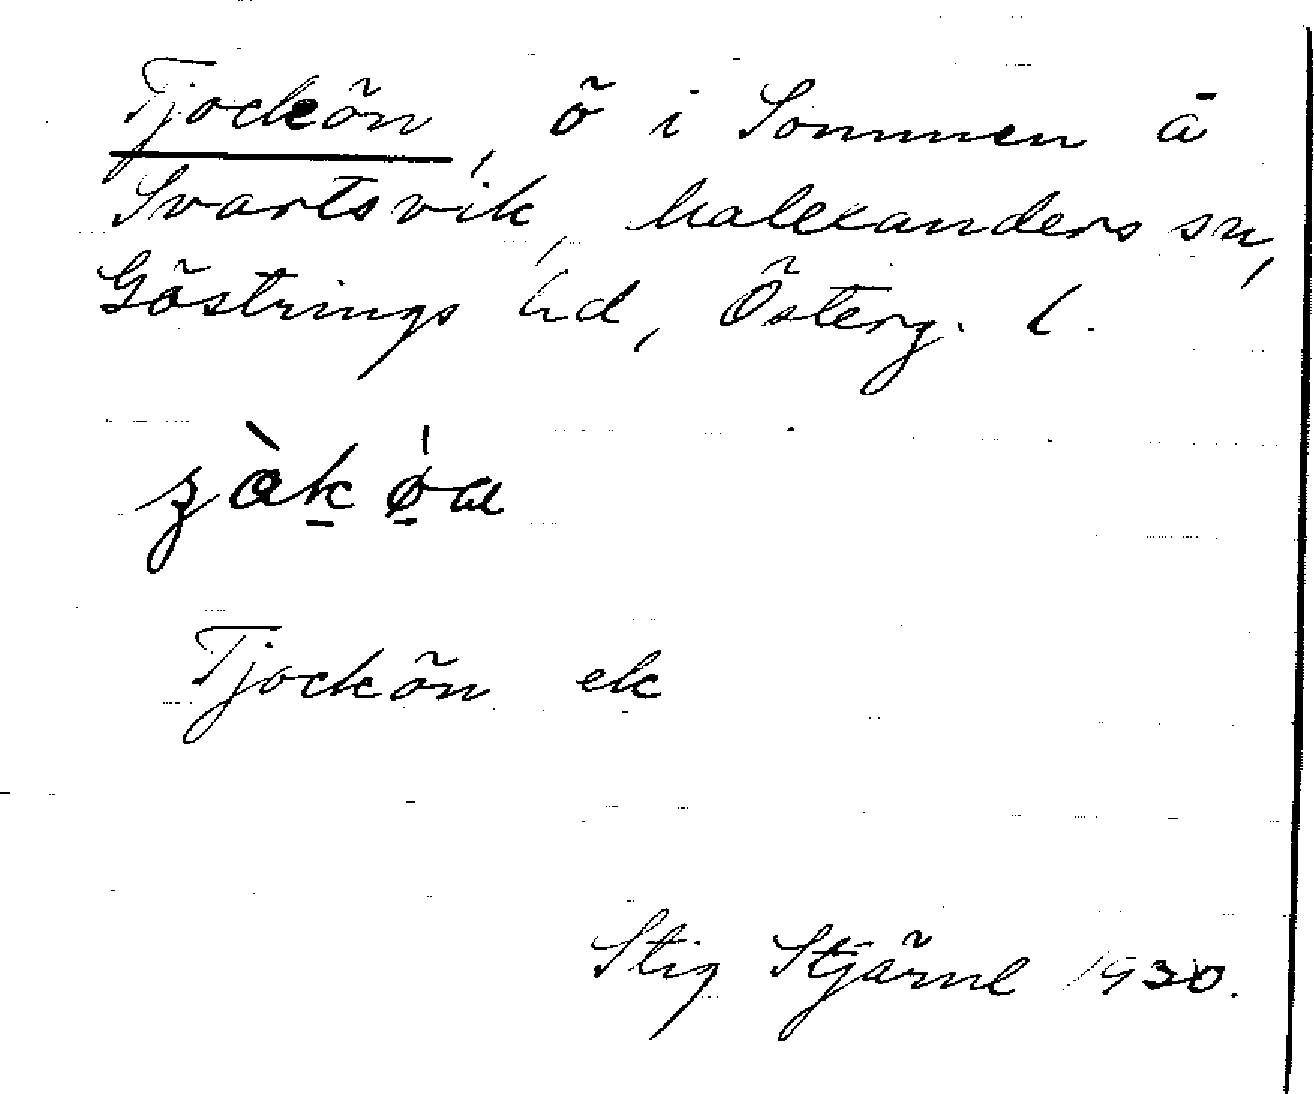 Tjockön, ö i Sommen å
Svartsvik, Malexanders sn,
Göstrings hd, Österg. l.
Tjockön ek
Stig Stjärne 1930.